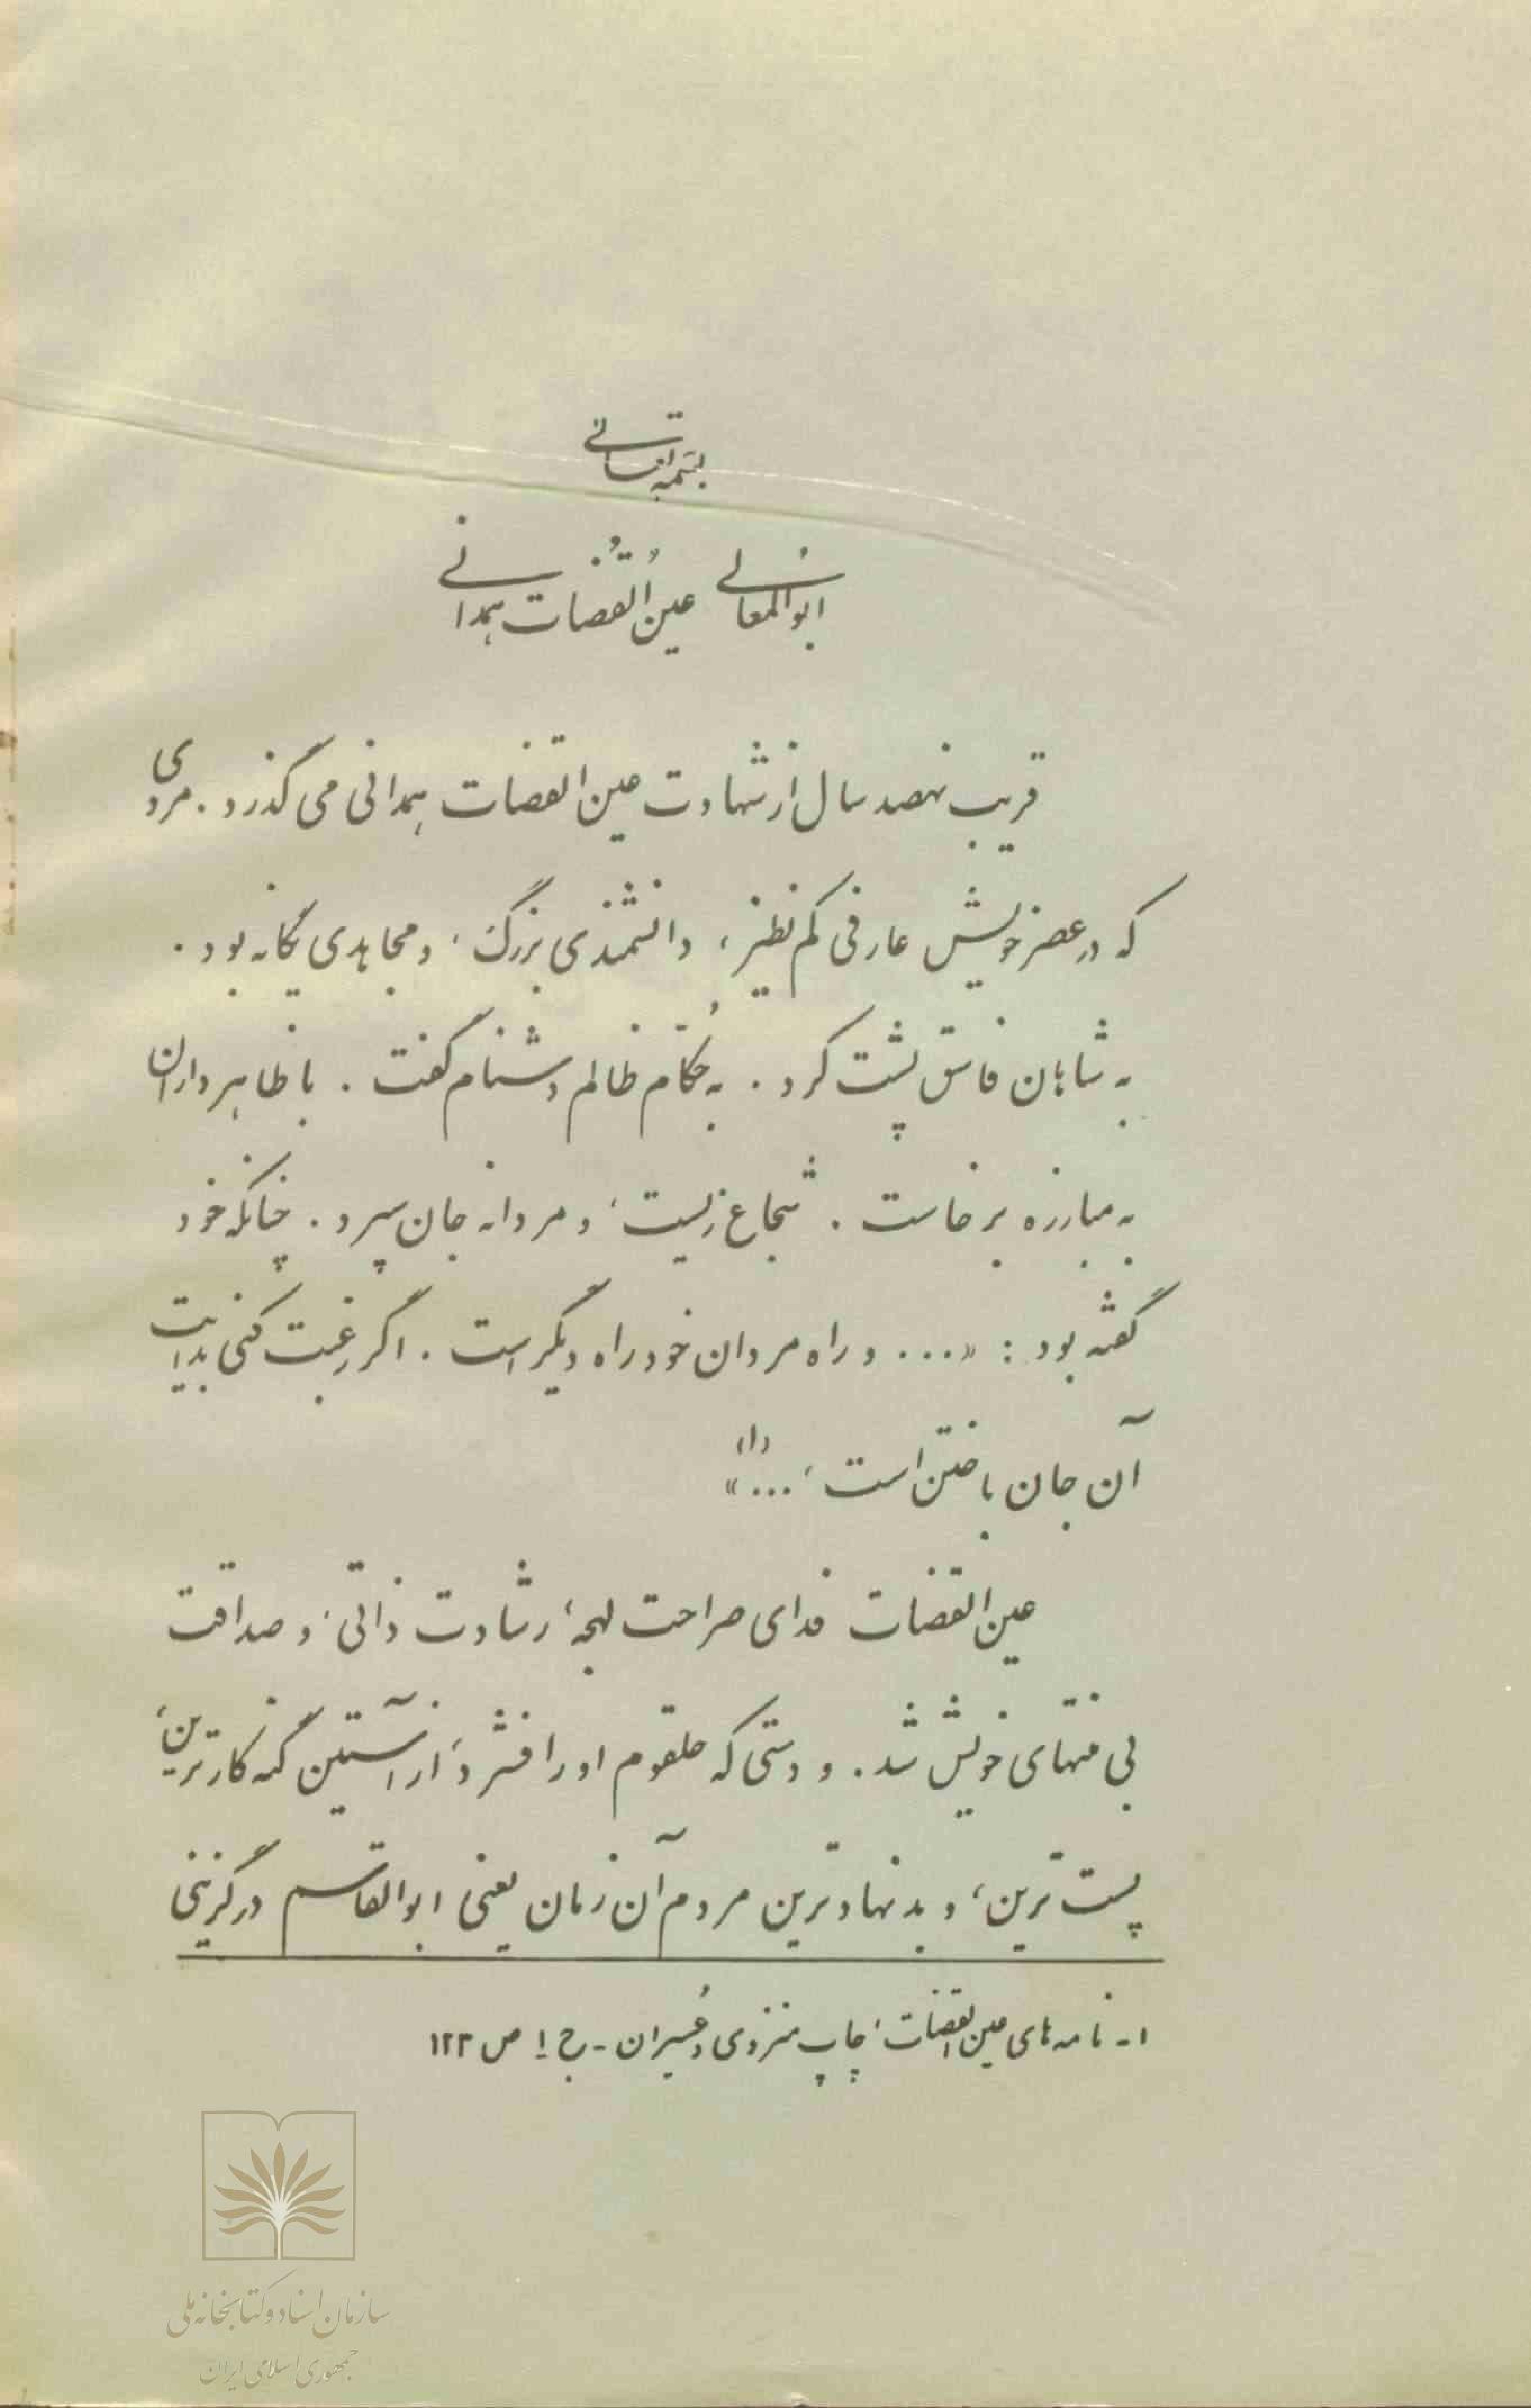 بسمه تعالی
ابوالمعالی عین القُضات همدانی
قریب نهصد سال از شهادت عین القضات همدانی می گذرد. مردی
که در عصر خویش عارفی کم نظیر، دانشمندی بزرگ، و مجاهدی یگانه بود.
به شاهان فاسق پشت کرد. به حُکّام ظالم دشنام گفت. با ظاهر داران
به مبارزه برخاست. شجاع زیست، و مردانه جان سپرد. چنانکه خود
گفته بود: «... و راه مردان خود راه دیگر است. اگر رغبت کنی بدایت
آن جان باختن است، ...»(۱)
عین القضات فدای صراحت لهجه، رشادت ذاتی، و صداقت
بی منتهای خویش شد. و دستی که حلقوم او را فشرد، از آستین گنه کارترین،
پست ترین، و بدنهادترین مردم آن زمان یعنی ابوالقاسم درگزینی
۱- نامه های عین القضات، چاپ منزوی و عُسیران - ج ۱ ص ۱۲۳
سازمان اسناد و کتابخانه ملی
جمهوری اسلامی ایران